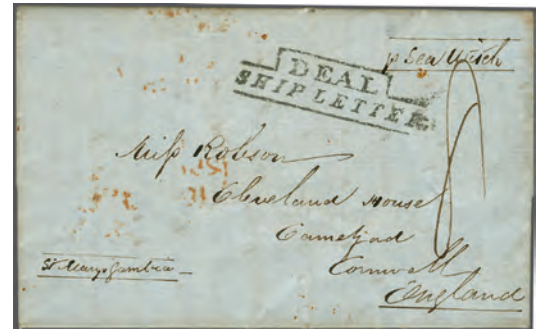 p Sea Witch
DEAL
SHIP LETTER
8
Miss Robson
Cleveland House
Camelford
Cornwall
St Marys Gambia
England